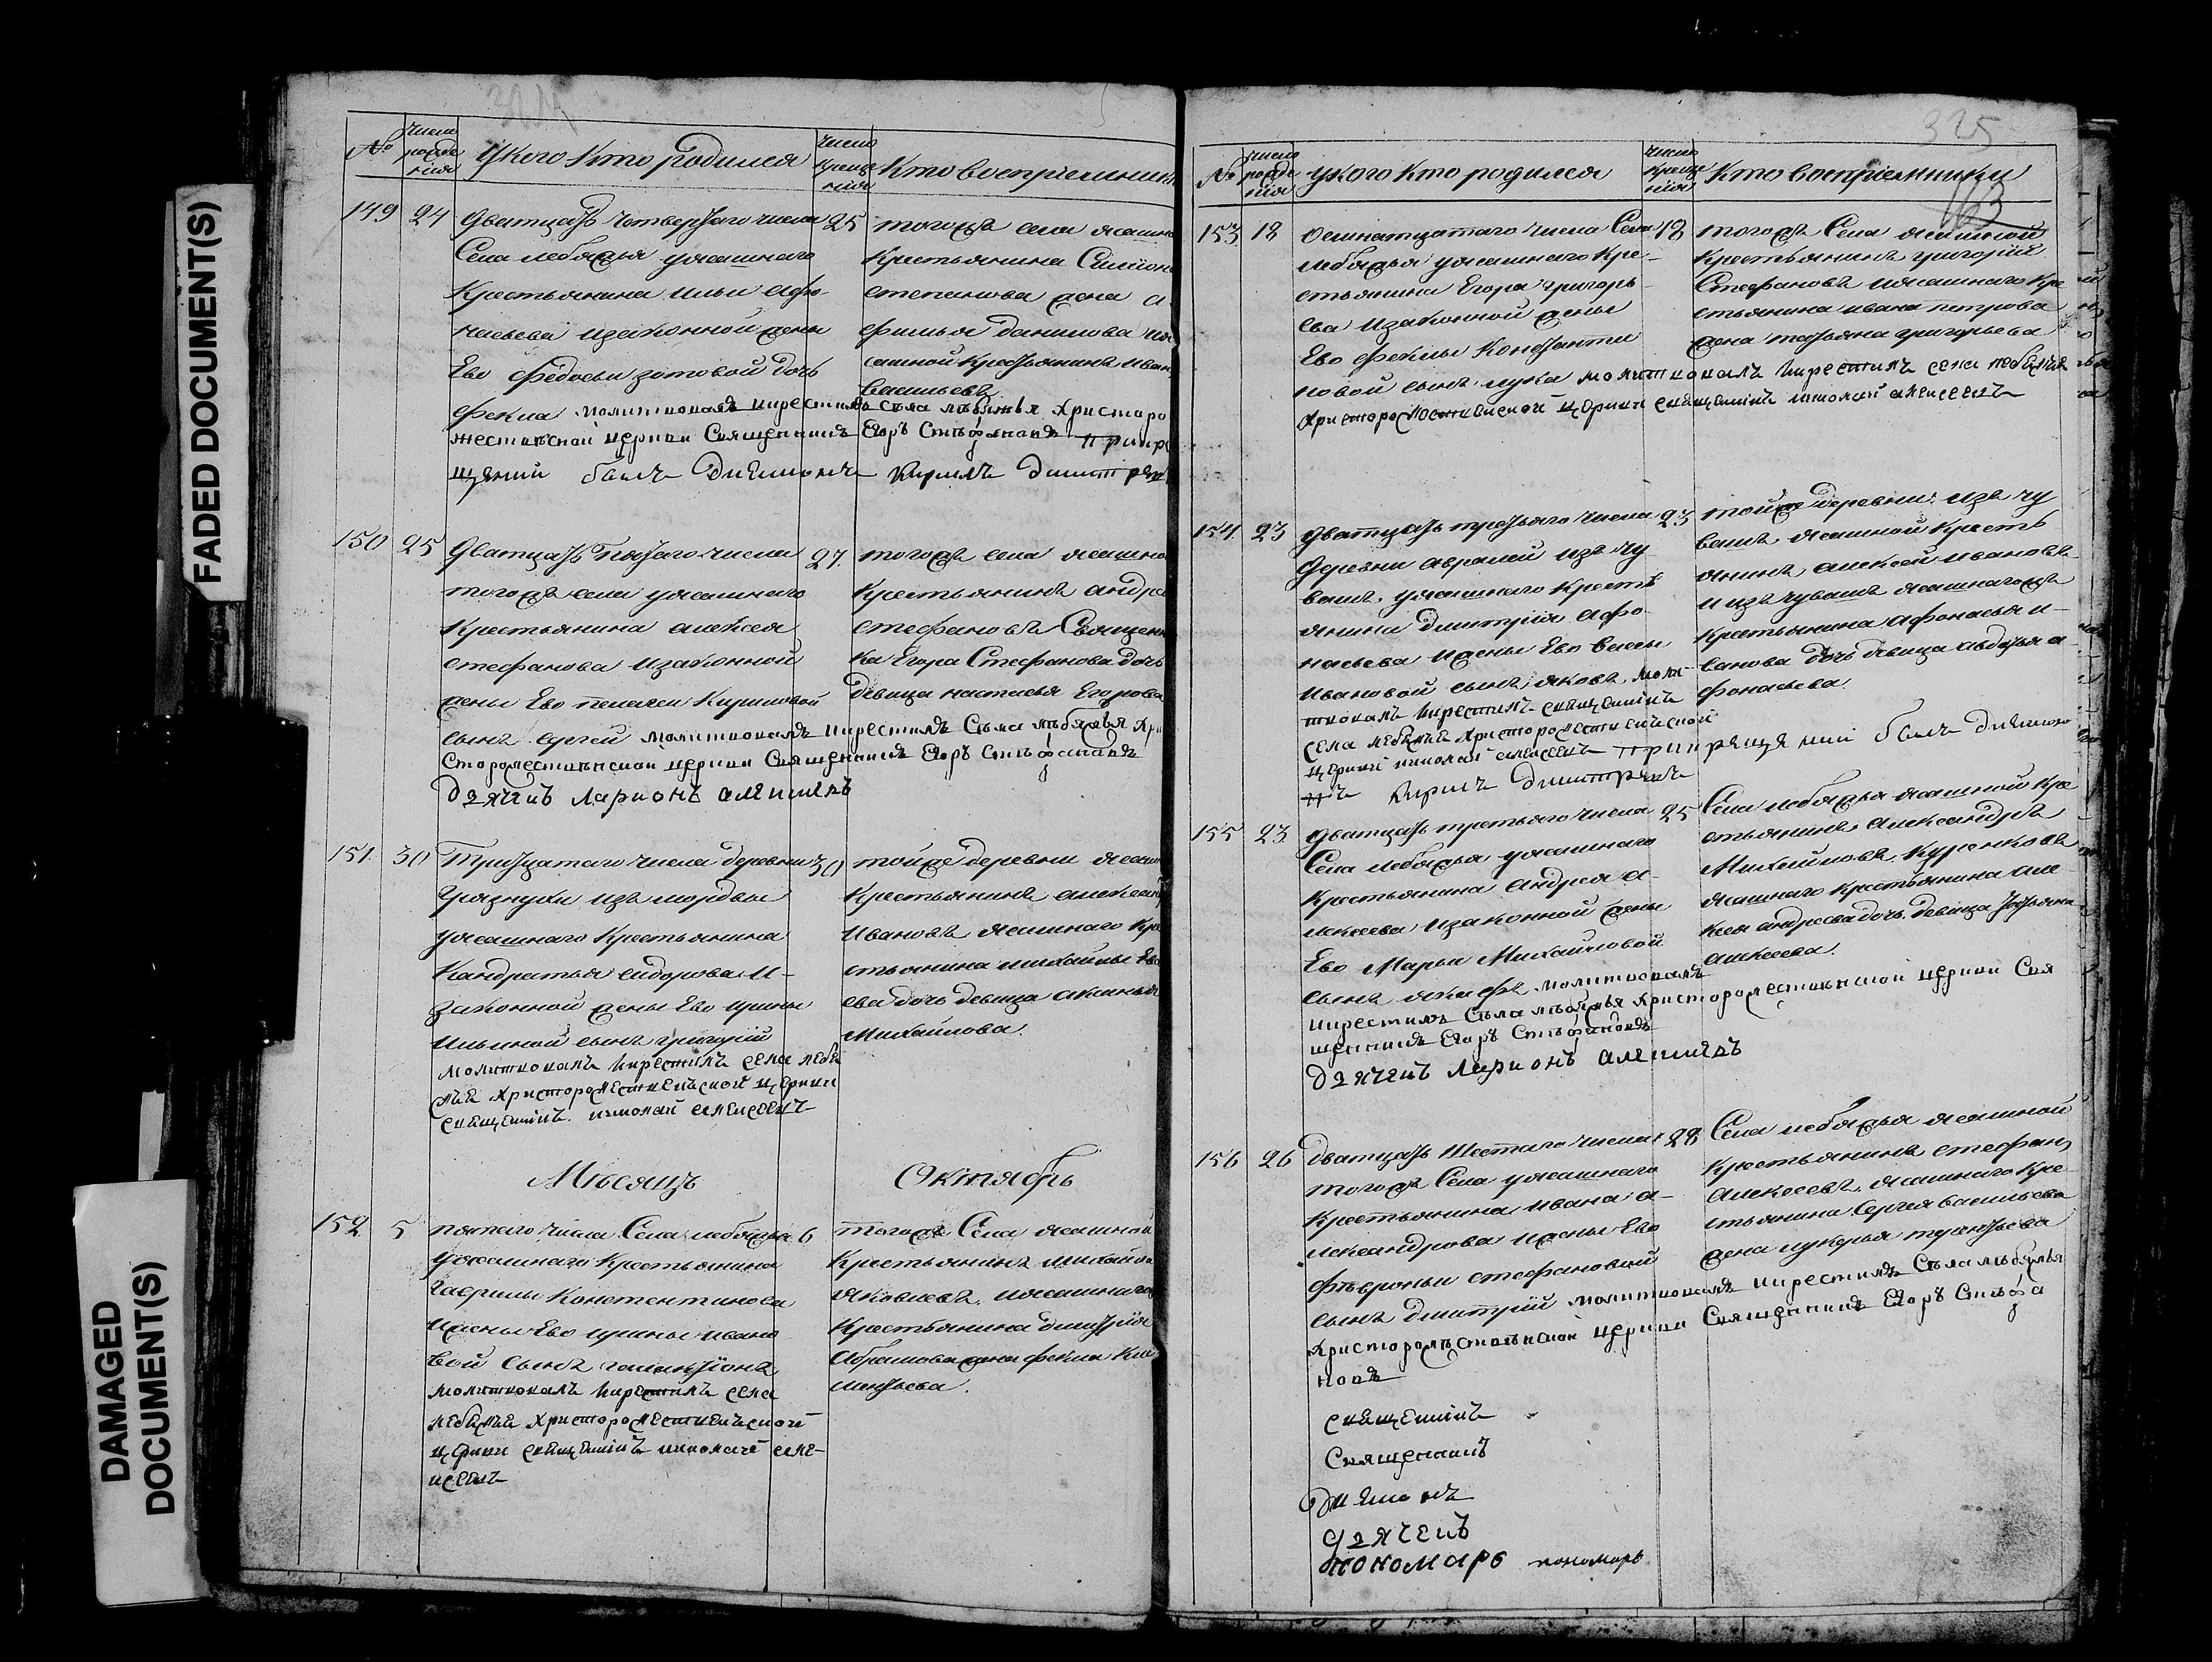 FADED DOCUMENT(S)
DAMAGED
DOCUMENT(S)
№
число рожде ния
у кого кто родился
число креще ния
кто восприемники
149 24 дватцать четвертаго числа 25
Села лебяжья уясашнаго
Крестьянина ильи афо-
насьева изаконной жены
Ево федосьи зотовой дочь
фекла молитвовалъ икрестилъ Села лебяжья Христоро
жественской церкви Священникъ Егоръ Стефановъ при кре
щении былъ диаконъ Кирилъ димитриевъ
тогожъ села ясашно
Крестьянина Симиона
степанова жена а-
фимья данилова ияс
сашной крестьянинъ иван
васильевъ
150 25 дватцать пятаго числа 27
тогожъ села уясашнаго
Крестьянина алексея
стефанова изаконной
жены Ево пелагеи Кириловой
сынъ сергей молитвовалъ икрестилъ Села лебяжья Хри
сторожественской церкви Священникъ Егоръ Стефановъ
дьячекъ Ларионъ алексиевъ
тогожъ села ясашно
Крестьянинъ андре
стефановъ Священни
ка Егора Стефанова дочь
девица настасья Егорова
151 30 Тритцатаго числа деревни 30
грязнухи изъ мордвы
уясашнаго Крестьянина
Кандратья сидорова и-
законной жены Ево ирины
ильиной сынъ григорий
молитвовалъ икрестилъ села лебя
жья христорожественской церкви
священникъ николай алексеевъ
тойже деревни ясаш
Крестьянинъ алексан
ивановъ ясашнаго кре
стьянина михайлы
ева дочь девица аксинья
Михаилова.
Месяцъ Октябрь
152 5 пятаго числа Села лебяжья 6
уясашнаго Крестьянина
Гаврилы Констентинова
ижены Ево ирины ивано
вой сынъ галактионъ
молитвовалъ икрестилъ села
лебяжья христорожественской
церкви священникъ николай але-
ксеевъ
тогожъ Села ясашной
Крестьянинъ михайла
яковлевъ иясашнаго
Крестьянина димитрия
абрамова жена фекла Кле
ментьева.
325
163
№
число рожде ния
у кого кто родился
число креще ния
кто восприемники
153 18 осмнатцатаго числа Села 18
лебяжья уясашнаго Кре-
стьянина Егора григорь-
ева изаконной жены
Ево феклы Константи
новой сынъ лука молитвовалъ икрестилъ села лебяжья
христорожественской церкви священникъ николай алексеевъ
тогожъ Села ясашной
Крестьянинъ григорий
Стефановъ иясашнаго Кре
стьянина ивана петрова
жена татьяна григорьева
154 23 дватцать третьяго числа 23
деревни авралей изъ чу
вашъ уясашнаго Кресть
янина димитрия афо-
насьева ижены Ево
ивановой сынъ яковъ моли
твовалъ икрестилъ священникъ
села лебяжья христорожественской
церкви николай алексеевъ при крещении былъ диако
нъ Кирилъ димитриевъ
тойже деревни изъ чу
вашъ ясашной Кресть
янинъ алексей ивановъ
иизъ чувашъ ясашнагожъ
Крестьянина афонасья и-
ванова дочь девица авдотья а
фонасьева.
155 23 дватцать третьяго числа 25
Села лебяжья уясашнаго
Крестьянина андрея а-
лексеева изаконной жены
Ево Марьи Михайловой
сынъ молитвовалъ
икрестилъ Села лебяжья христорожественской церкви Свя
щенникъ Егоръ Стефановъ
дьячекъ Ларионъ алексиевъ
Села лебяжья ясашной кре
стьянинъ александръ
Михайловъ Куренковъ
ясашнаго Крестьянина але
ксея андреева дочь девица татьяна
алексеева.
156 26 дватцать шестаго числа 28
тогожъ Села уясашнаго
Крестьянина ивана а-
лександрова ижены Ево
февроньи стефановой
сынъ димитрий молитвовалъ икрестилъ Села лебяжья
христорожественской церкви Священникъ Егоръ Стефа
новъ
Села лебяжья ясашной
Крестьянинъ стефанъ
алексеевъ ясашнаго Кре-
стьянина Сергея васильева
жена лукерья терентьева
священникъ
Священникъ
диаконъ
дьячекъ
пономарь пономарь